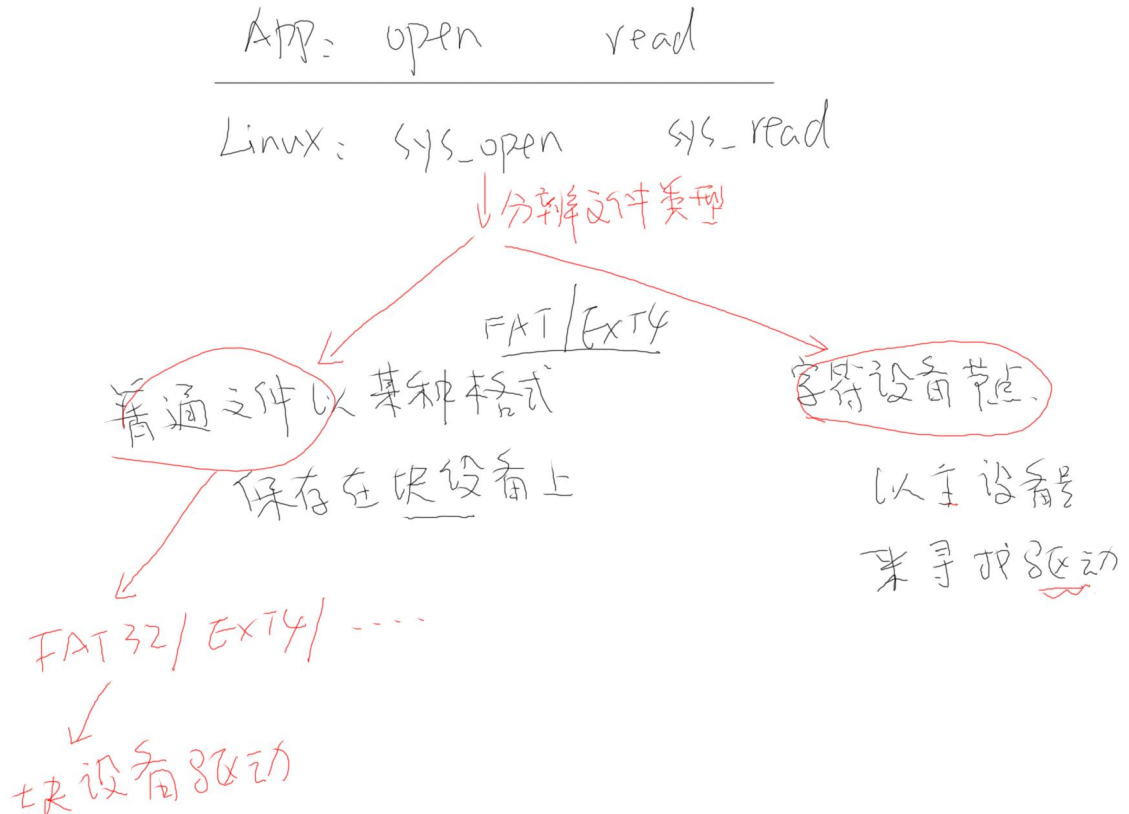 App: open read
Linux: sys_open sys_read
分辨文件类型
FAT/EXT4
普通文件以某种格式
保存在块设备上
字符设备节点.
以主设备号
来寻找驱动
FAT32/EXT4/....
块设备驱动